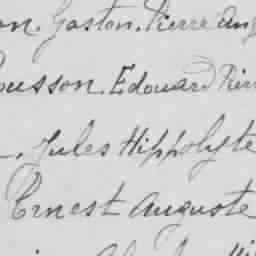 on. Gaston. Pierre Aug
ousson. Edouard Pier
Jules Hippolyte
Ernest Auguste